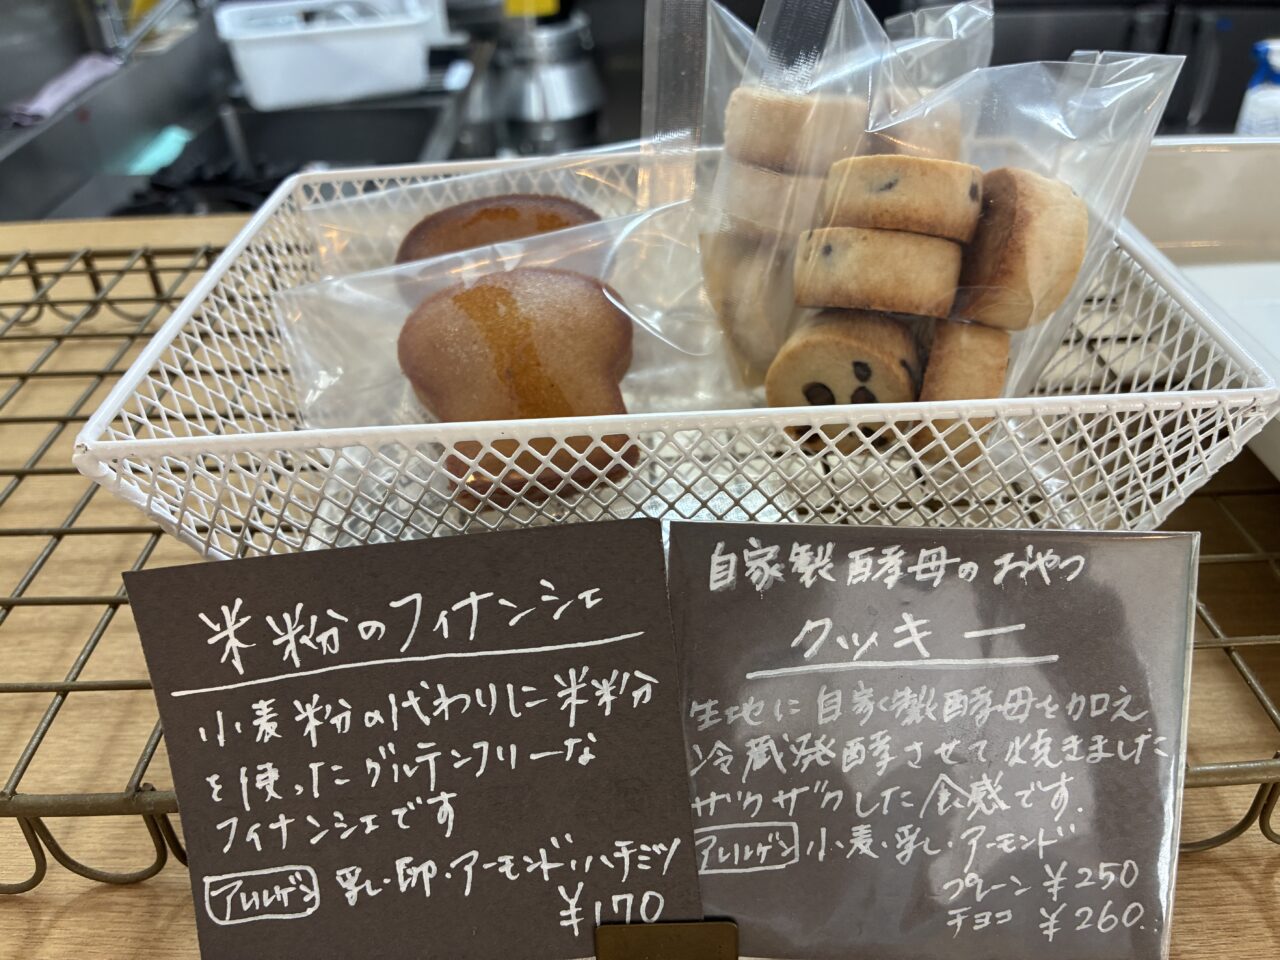 米粉のフィナンシェ
小麦粉の代わりに米粉
を使ったグルテンフリーな
フィナンシェです
アレルゲン 乳・卵・アーモンド・ハチミツ
¥170
自家製酵母のおやつ
クッキー
生地に自家製酵母を加え
冷蔵発酵させて焼きました
ザクザクした食感です.
アレルゲン 小麦・乳・アーモンド
プレーン ¥250
チョコ ¥260.